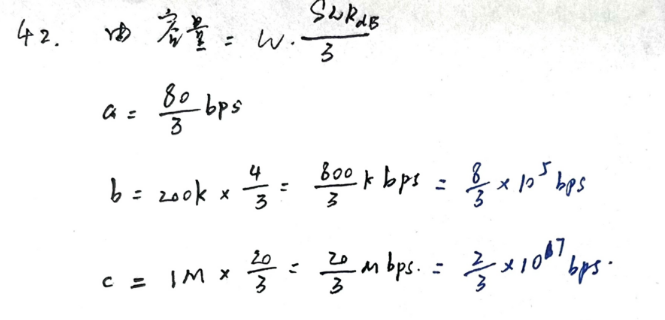 42. 由 容量 = W · SNRdB/3
a = 80/3 bps
b = 200k × 4/3 = 800/3 k bps = 8/3 × 10^5 bps
c = 1M × 20/3 = 20/3 M bps. = 2/3 × 10^7 bps.